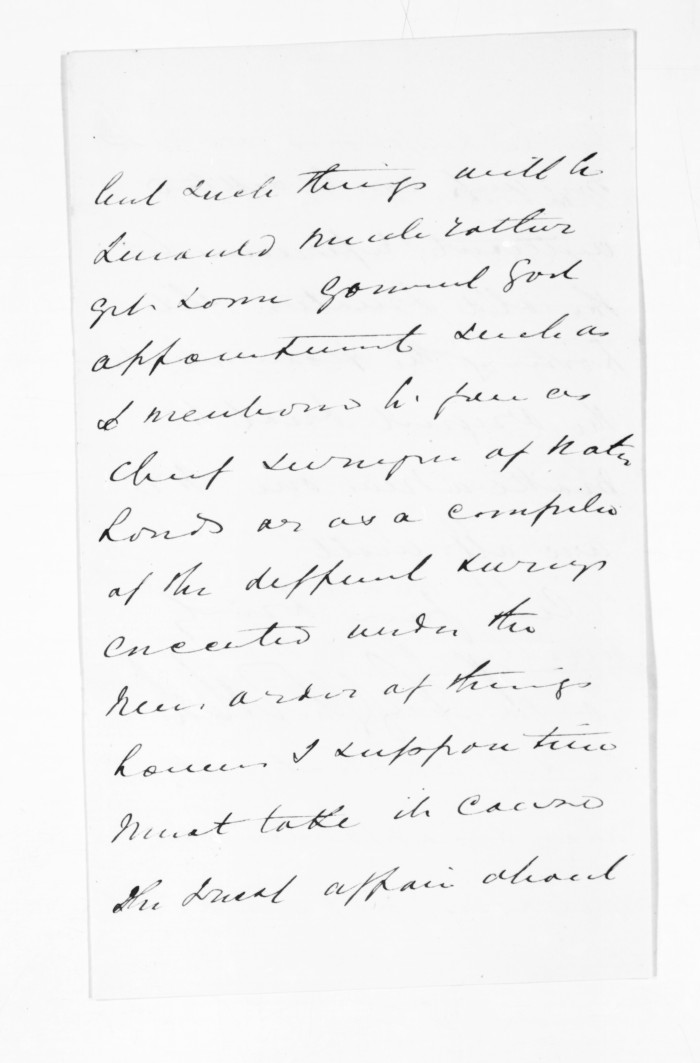 but such things will be
I would much rather
get some general Govt
appointment such as
I mentioned to you as
Chief Surveyor of Native
Lands or as a compiler
of the different surveys
executed under the
new order of things
however I suppose time
must take its course
The affair about